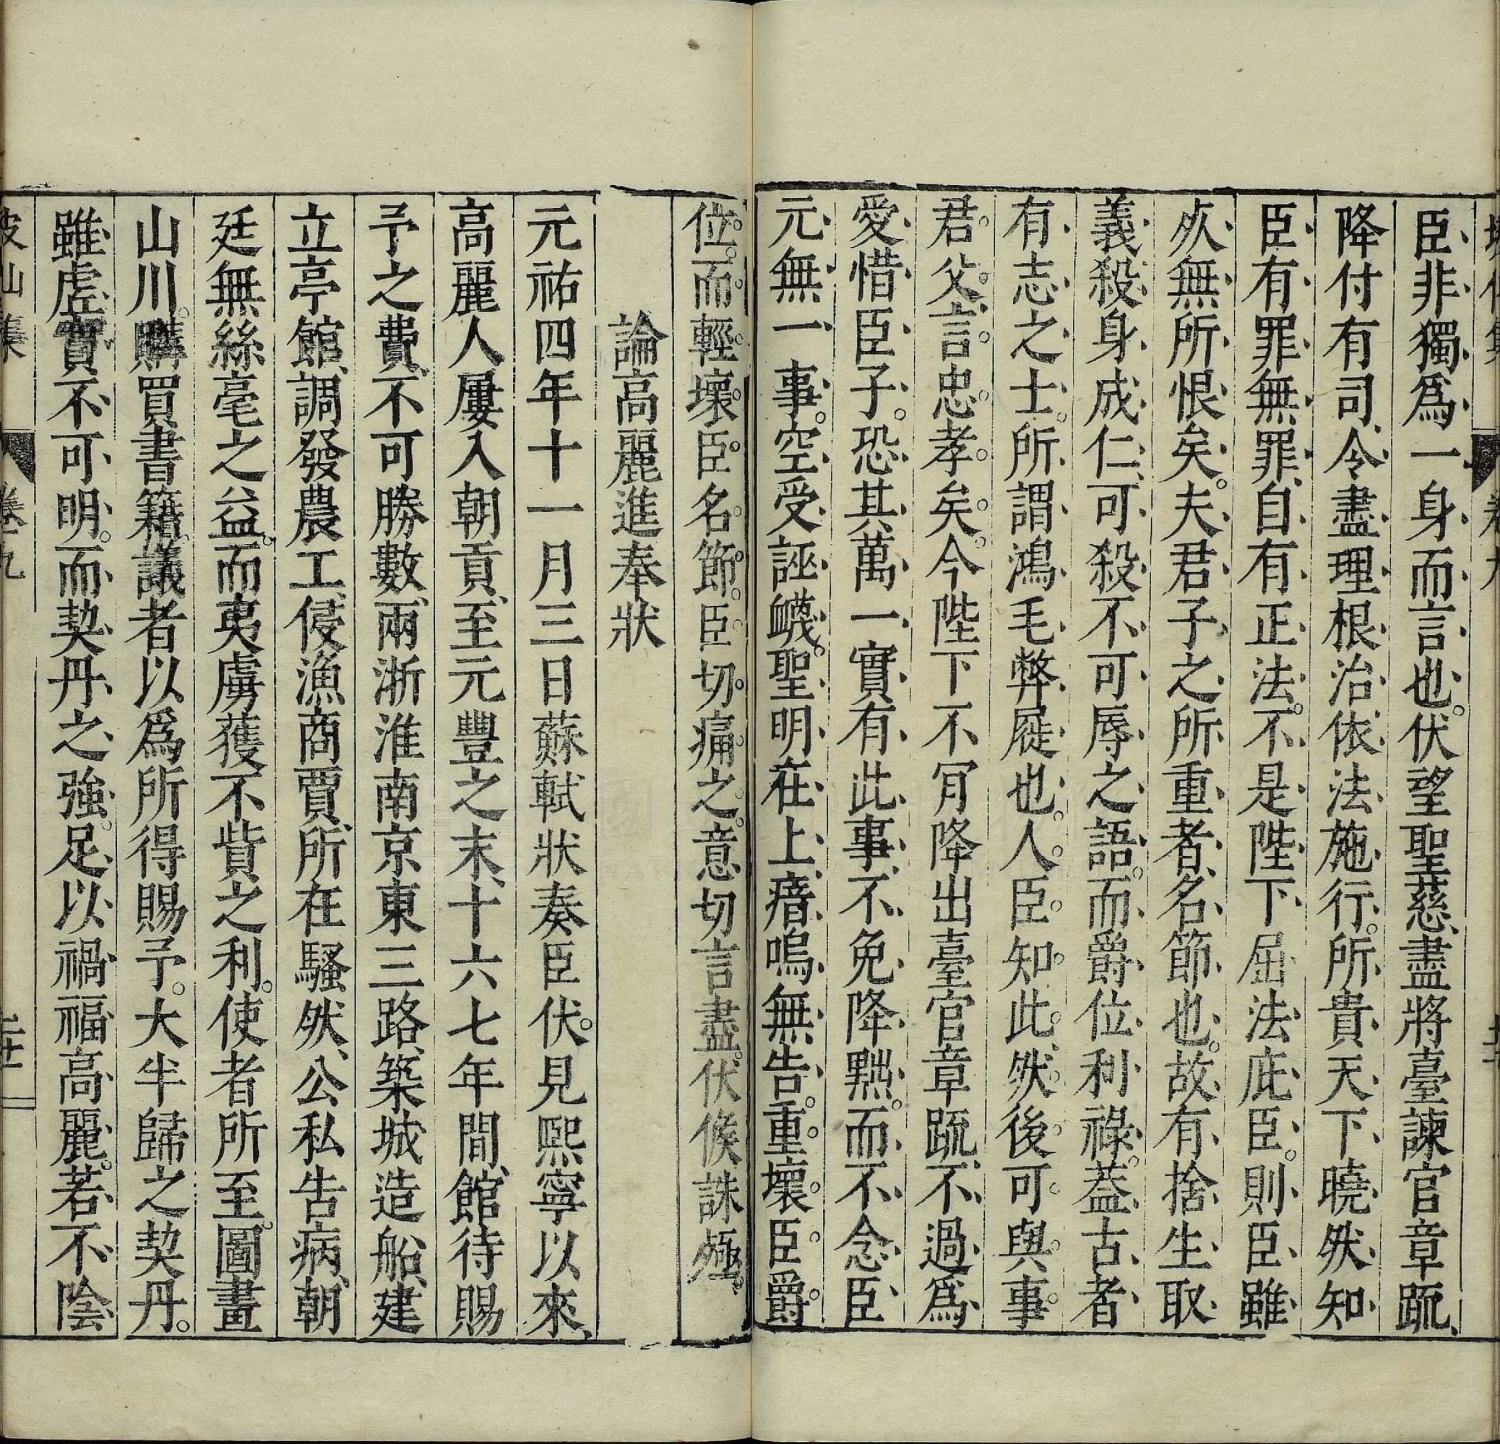 臣非獨爲一身而言也。伏望聖慈、盡將臺諫官章疏、
降付有司、令盡理根治、依法施行。所貴天下曉然知
臣有罪無罪、自有正法。不是陛下屈法庇臣。則臣雖
死無所恨矣。夫君子之所重者、名節也。故有捨生取
義、殺身成仁、可殺不可辱之語。而爵位利祿、蓋古者
有志之士。所謂鴻毛弊屣也。人臣知此、然後可與事
君父、言忠孝矣。今陛下不肯降出臺官章疏、不過爲
愛惜臣子。恐其萬一實有此事、不免降黜。而不念臣
元無一事。空受誣衊。聖明在上、瘖嗚無告。重壞臣爵
位。而輕壞臣名節。臣切痛之。意切言盡。伏候誅殛。
論高麗進奉狀
元祐四年十一月三日蘇軾狀奏臣伏見熙寧以來、
高麗人屢入朝貢、至元豐之末、十六七年間、館待賜
予之費、不可勝數、兩浙淮南京東三路、築城造船、建
立亭館、調發農工、侵漁商賈、所在騷然、公私告病、朝
廷無絲毫之益。而夷虜獲不貲之利。使者所至。圖畫
山川。購買書籍。議者以爲所得賜予。大半歸之契丹。
雖虛實不可明。而契丹之強。足以禍福高麗。若不陰
坡仙集
卷九